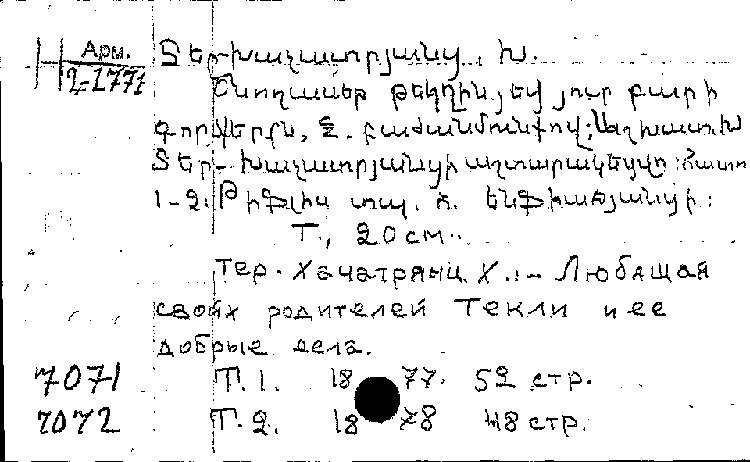 Арм. Տեր-Խաչատրյանց, Խ.
Н 2-1771
Ծնողասեր Թեկղին, եվ յուր բարի
գործերըն, 2. բաժանմունքով: Աշխատ. Խ
Տեր-Խաչատրյանցի աշտարակեցվո: Հատո
1-2. Թիֆլիս տպ. Հ. Ենֆիաճյանցի:
Т., 20 см.
Тер. Хачатрянц Х. - Любящая
своих родителей Текли и ее
добрые дела.
7071 Т. 1. 18 77. 52 стр.
7072 Т. 2. 18 78 48 стр.